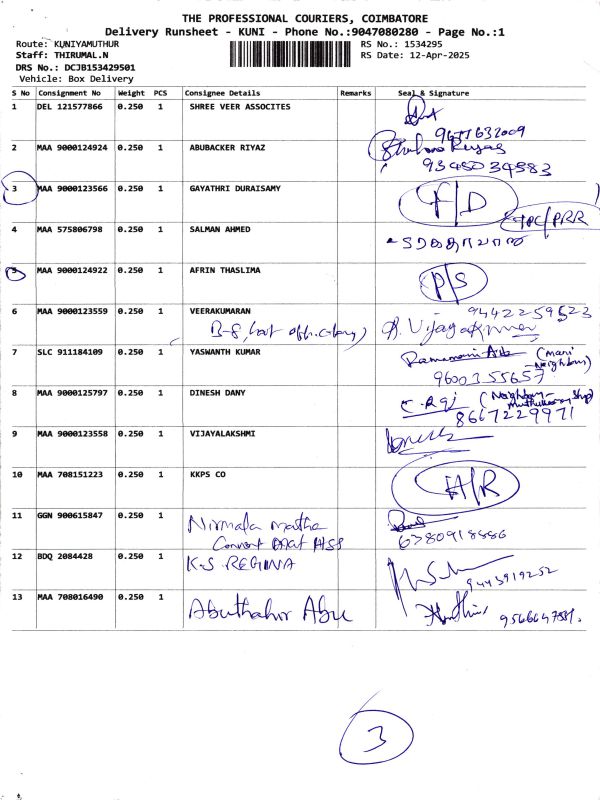 THE PROFESSIONAL COURIERS, COIMBATORE
Delivery Runsheet - KUNI - Phone No.:9047080280 - Page No.:1
Route: KUNIYAMUTHUR
RS No.: 1534295
Staff: THIRUMAL.N
RS Date: 12-Apr-2025
DRS No.: DCJB153429501
Vehicle: Box Delivery
S No Consignment No Weight PCS Consignee Details Remarks Seal & Signature
1 DEL 121577866 0.250 1 SHREE VEER ASSOCITES
9677632009
2 MAA 9000124924 0.250 1 ABUBACKER RIYAZ
Riyas
9345034583
3 MAA 9000123566 0.250 1 GAYATHRI DURAISAMY F/D
TPC/PRR
4 MAA 575806798 0.250 1 SALMAN AHMED
5 MAA 9000124922 0.250 1 AFRIN THASLIMA P/S
6 MAA 9000123559 0.250 1 VEERAKUMARAN 9442259523
R. Vijayakumar
7 SLC 911184109 0.250 1 YASWANTH KUMAR (Mani
Neighbour)
9600355657
8 MAA 9000125797 0.250 1 DINESH DANY C.Raj (Neighbour
Shop)
8667229971
9 MAA 9000123558 0.250 1 VIJAYALAKSHMI
10 MAA 708151223 0.250 1 KKPS CO A/R
11 GGN 900615847 0.250 1 Nirmala matha
Convent HSS 6380918886
12 BDQ 2084428 0.250 1 K.S REGINA
9443919252
13 MAA 708016490 0.250 1 Abuthahir Abu
3